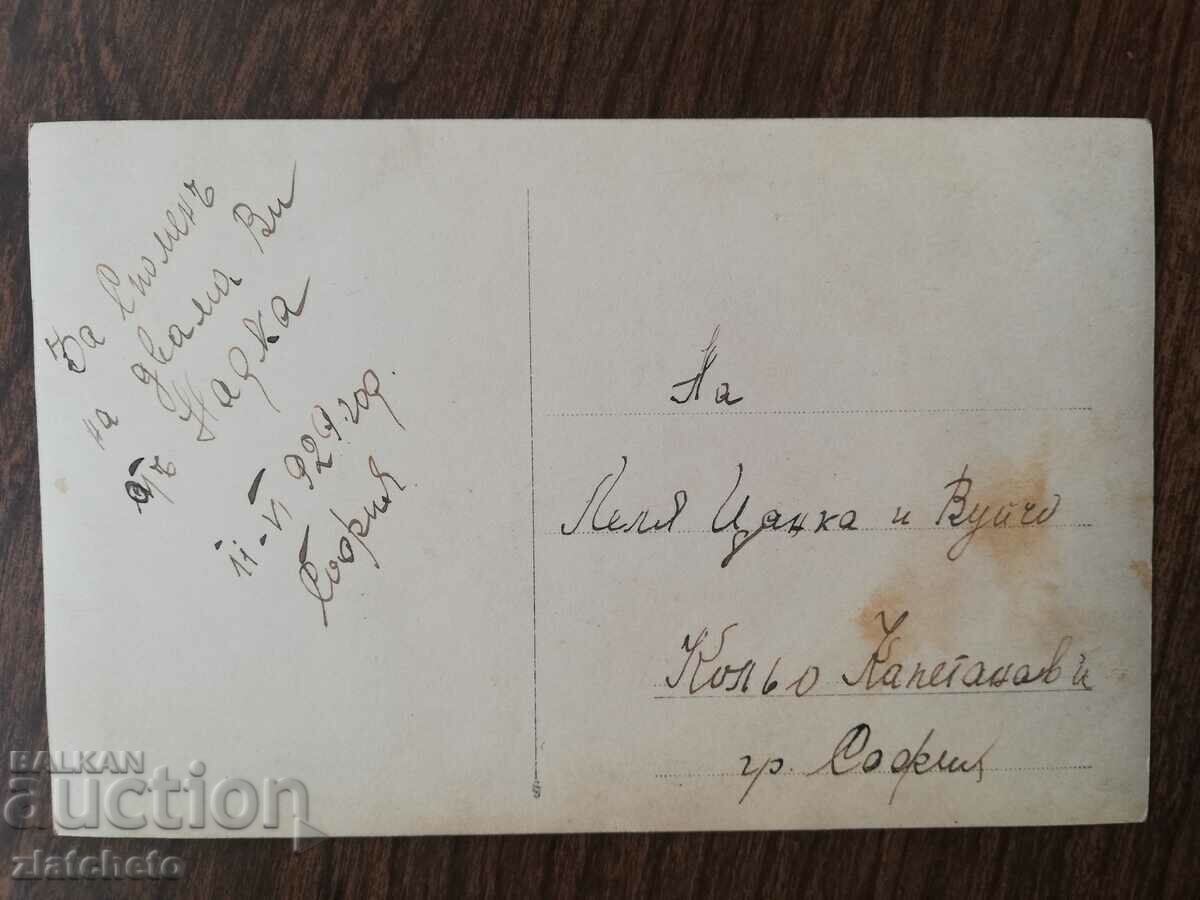 За Споменъ
на двама Ви
отъ Надка
11-VI 929 год.
София
На
Леля Цанка и Вуйчо
Кольо Капетанови
гр. София
BALKAN
auction
zlatcheto